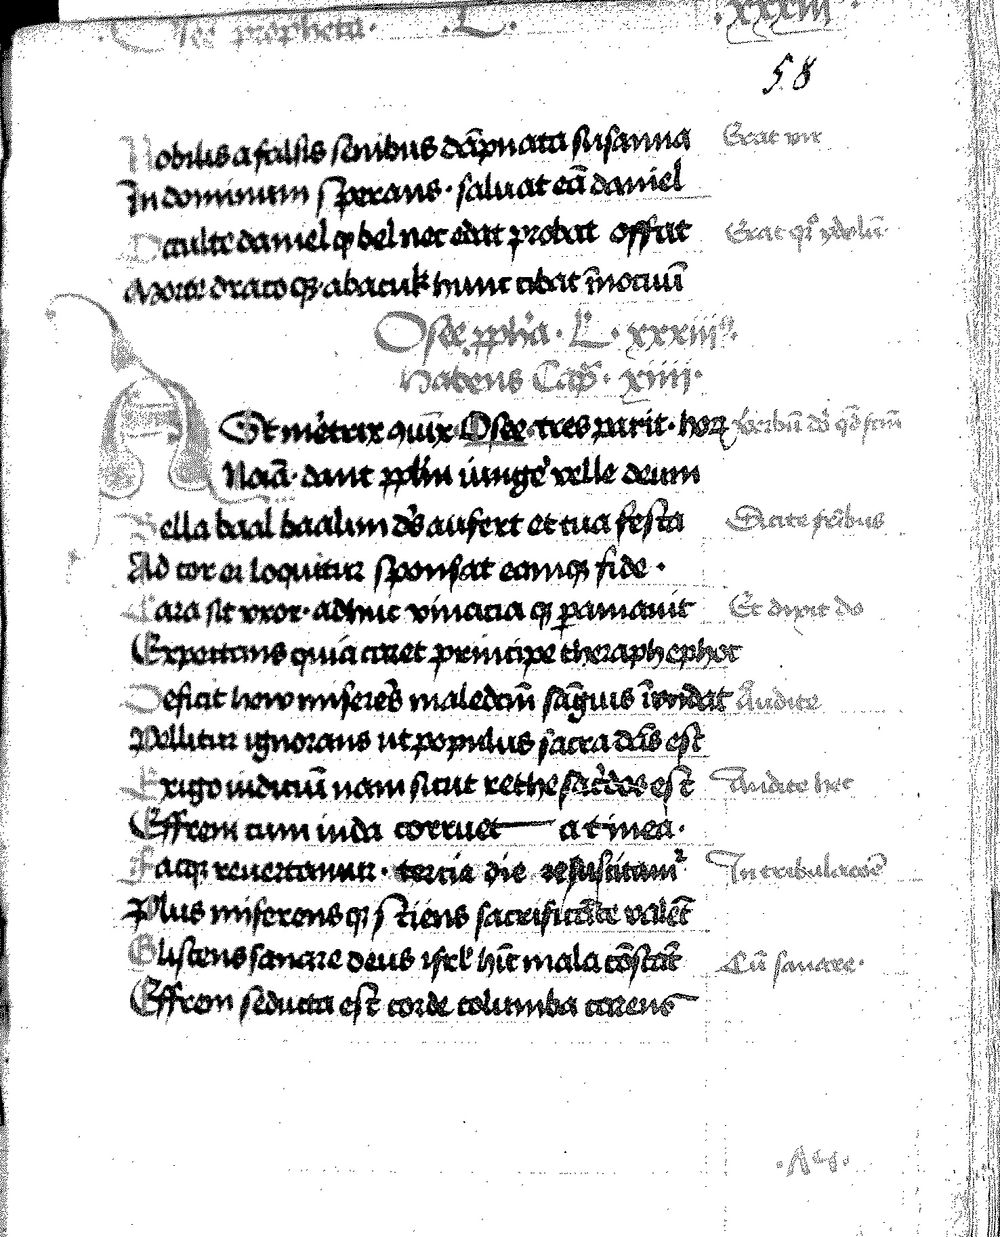 Osee propheta · L · xxxiii
58
Nobilis a falsis senibus dāpnata susanna
Erat vir
In dominum sperans · saluat eā daniel
Oculte daniel ꝙ bel nec edat probat offat
Erat qͦꝫ ydolū
Morte draco qꝫ abacuk hunc cibat īnocuū
Osee ꝓpħa · L · xxxiii ·
habens Cap̄ · xiiii ·
Est met̄rix quiꝫ Osee · tres parit · hoꝝ
verbū dn̄i qd̄ fcm̄
Noīa · dant pplm̄ iunge᷒ velle deum
Bella baal baalim ds̄ aufert et tua festa
Dicite fr̄ibus
Ad cor ei loquitur sponsat eamqꝫ fide ·
Cara sit vxor · adhuc vinacia qꝫ ꝑamauit
Et dixit do
Expectans quia caret principe theraph ephot
Deficit hew miseres̄ maledcm̄ sāguis īvndat
Audite
Pellitur ignorans ut populus sacra dās est
Exigo iudiciū nam sicut rethe sac̄dos est
Audite hec
Effrem cum iuda corruet a tinea ·
Facqꝫ reuertamur · tercia die resuscitam᷒
In tribulacōe
Plus miserens qꝫ sciens sacrificāte valēt
Gliscens sanare deus isrl̄ hīc mala cōstāt
Cū sanare ·
Effrem seducta est corde columba carens